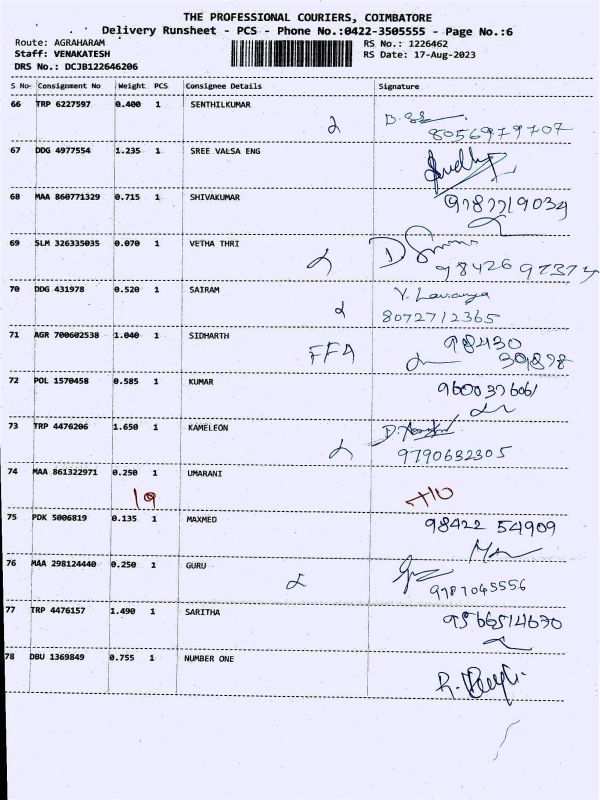 THE PROFESSIONAL COURIERS, COIMBATORE
Delivery Runsheet - PCS - Phone No.:0422-3505555 - Page No.:6
Route: AGRAHARAM RS No.: 1226462
Staff: VENAKATESH RS Date: 17-Aug-2023
DRS No.: DCJB122646206
S No Consignment No Weight PCS Consignee Details Signature
66 TRP 6227597 0.400 1 SENTHILKUMAR
8056979707
67 DDG 4977554 1.235 1 SREE VALSA ENG
68 MAA 860771329 0.715 1 SHIVAKUMAR
9787719034
69 SLM 326335035 0.070 1 VETHA THRI
70 DDG 431978 0.520 1 SAIRAM V. Lavanya
8072712365
71 AGR 700602538 1.040 1 SIDHARTH 98430
FFA 30898
72 POL 1570458 0.585 1 KUMAR
73 TRP 4476206 1.650 1 KAMELEON
9790632305
74 MAA 861322971 0.250 1 UMARANI
19
75 PDK 5006819 0.135 1 MAXMED 98422 54909
76 MAA 298124440 0.250 1 GURU
9787045556
77 TRP 4476157 1.490 1 SARITHA 9566514670
78 DBU 1369849 0.755 1 NUMBER ONE